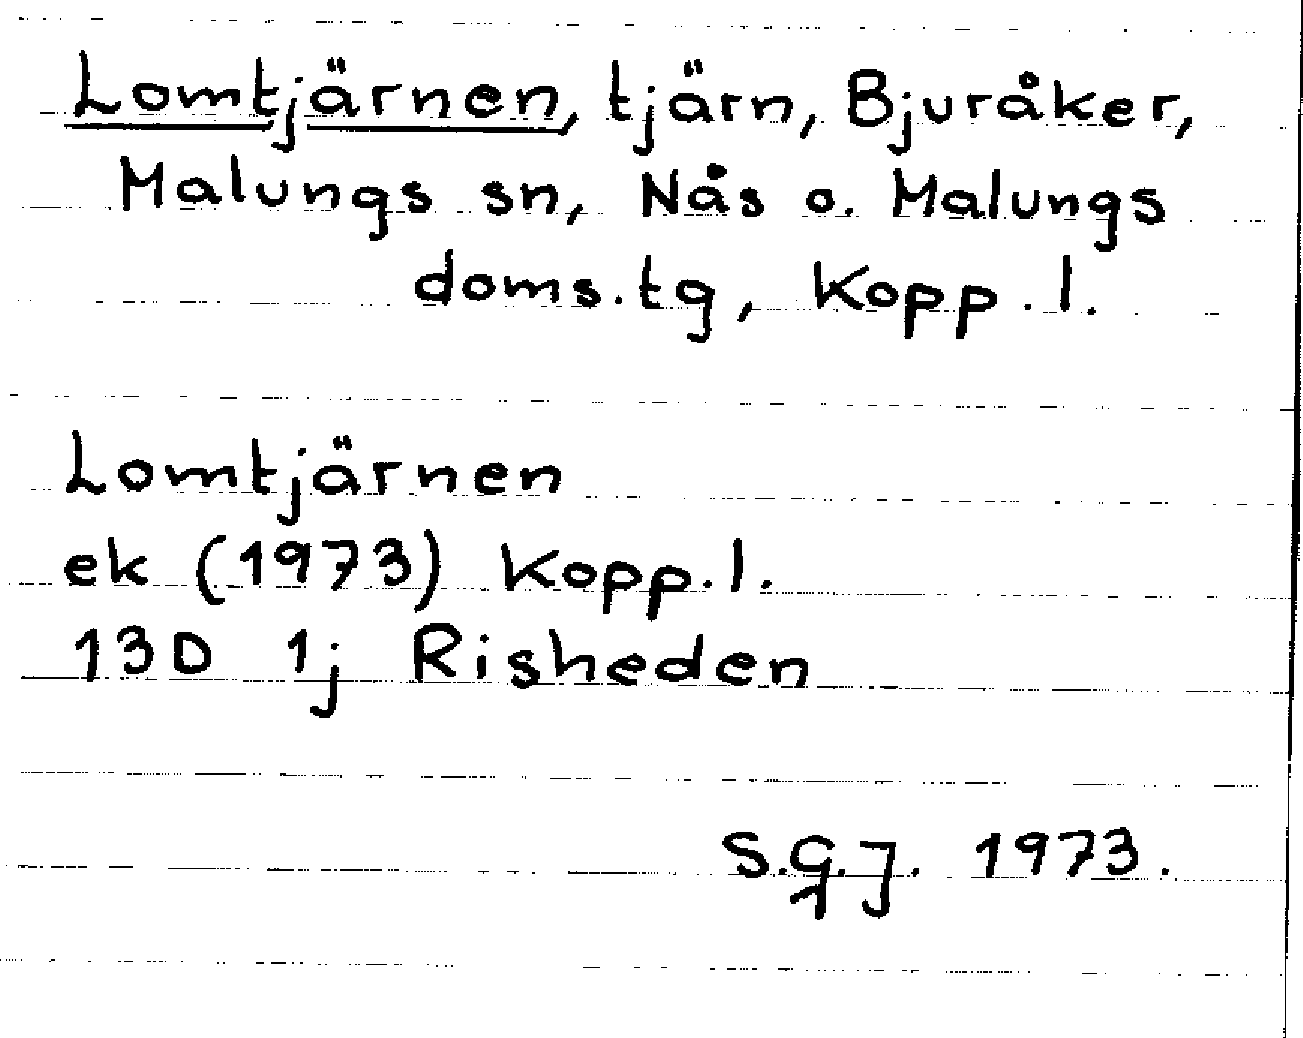 Lomtjärnen, tjärn, Bjuråker,
Malungs sn, Nås o. Malungs
doms.tg, Kopp.l.
Lomtjärnen
ek (1973) Kopp.l.
13D 1j Risheden
S.G.J. 1973.